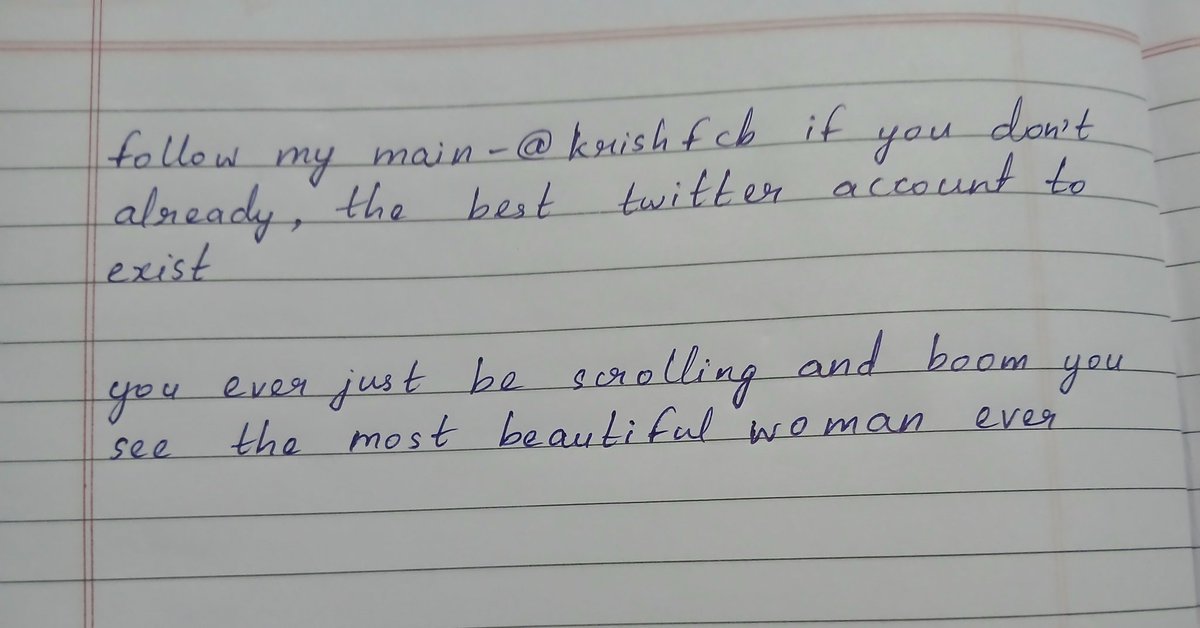 follow my main - @krishfcb if you don't
already, the best twitter account to
exist
you ever just be scrolling and boom you
see the most beautiful woman ever